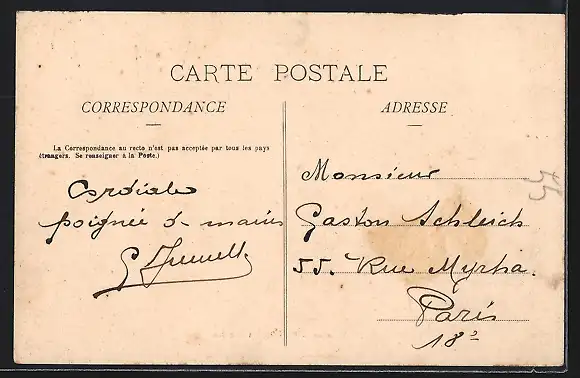 CARTE POSTALE
CORRESPONDANCE
La Correspondance au recto n'est pas acceptée par tous les pays
étrangers. Se renseigner à la Poste.)
Cordiale
poignée de mains
G
ADRESSE
Monsieur
Gaston Schleich
55. Rue Myrha.
Paris
18e
55